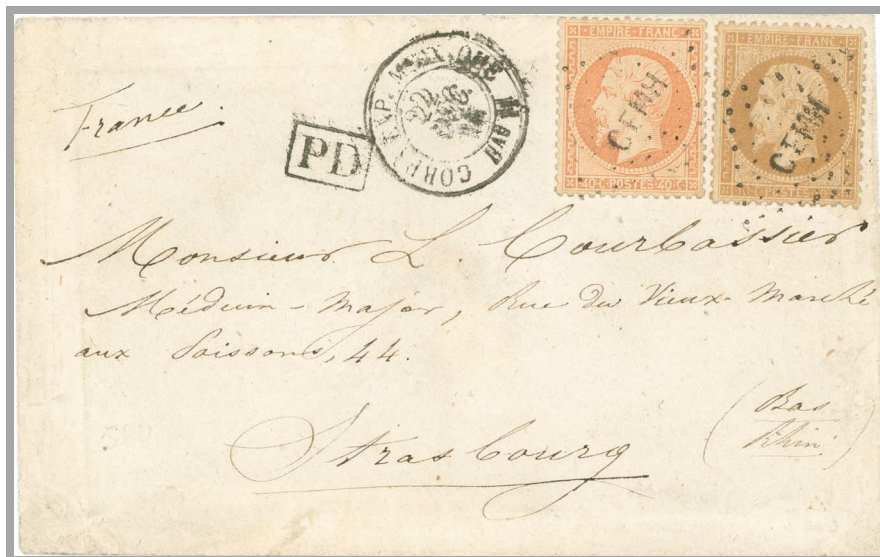 France.
PD
CORPS EXP. MEXIQUE
EMPIRE FRANC
40 C POSTES 40 C
EMPIRE FRANC
POSTES
CEMH
Monsieur L. Courbassier
Médecin-Major, Rue du Vieux-Marché
aux Poissons, 44.
Strasbourg
(Bas
Rhin)